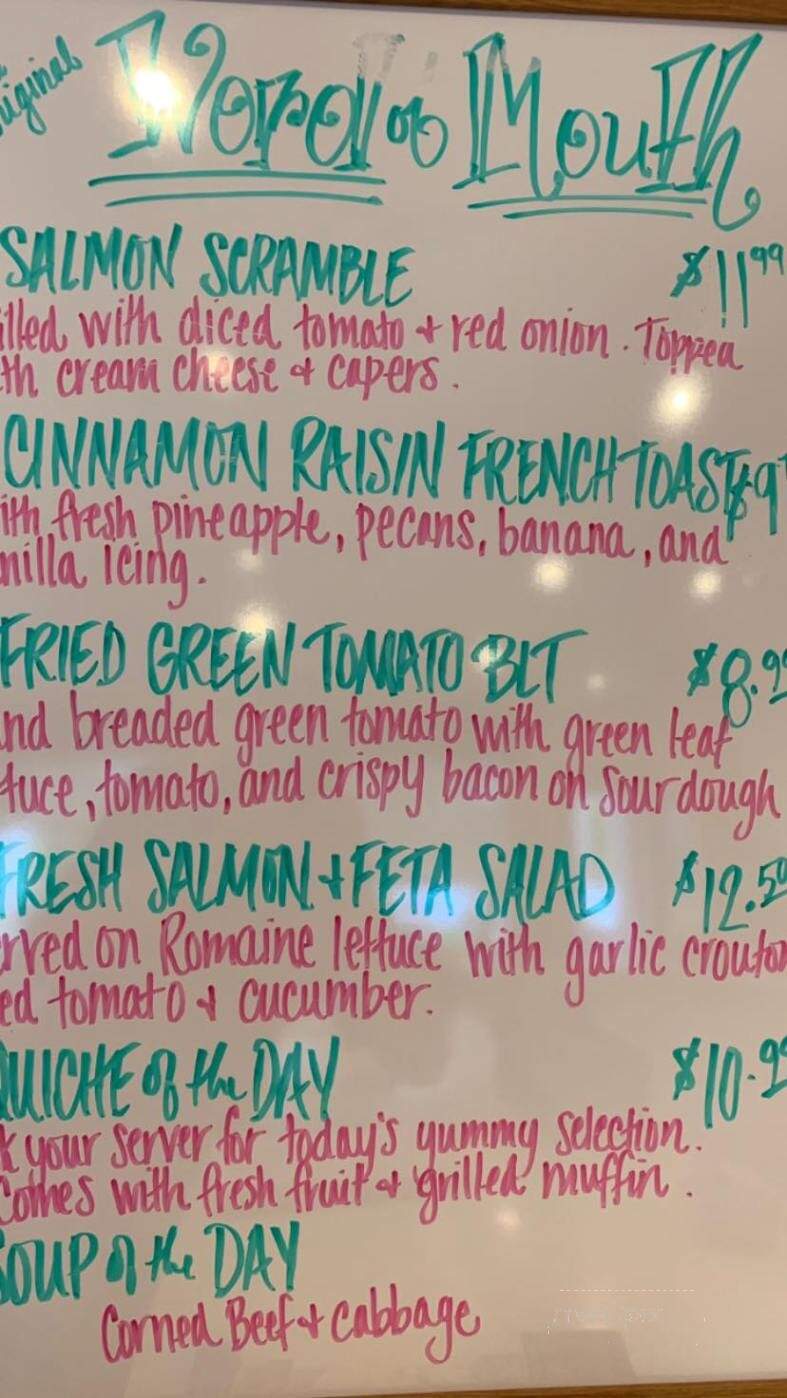 riginal
Word of Mouth
SALMON SCRAMBLE $11 99
illed with diced tomato + red onion. Topped
th cream cheese + capers.
CINNAMON RAISIN FRENCH TOAST $9
ith fresh pineapple, pecans, banana, and
nilla Icing.
FRIED GREEN TOMATO BLT $8.99
nd breaded green tomato with green leaf
tuce, tomato, and crispy bacon on Sourdough
FRESH SALMON + FETA SALAD $12.50
rved on Romaine lettuce with garlic crouton
ed tomato + cucumber.
QUICHE of the DAY $10.99
k your server for today's yummy selection.
Comes with fresh fruit + grilled muffin.
SOUP of the DAY
Corned Beef + Cabbage